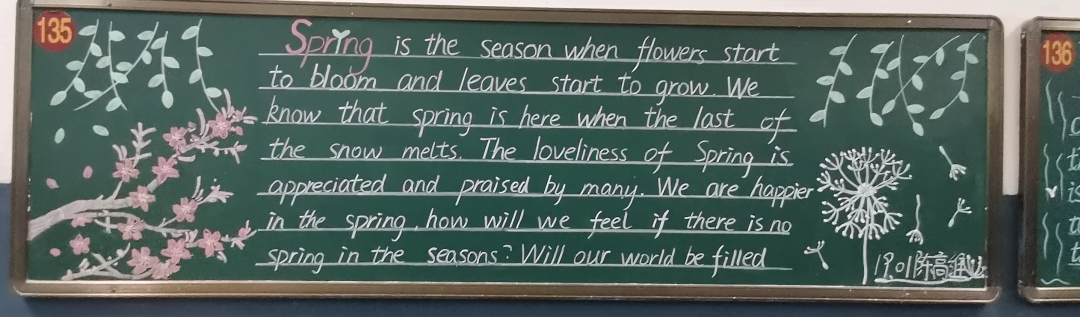 135
Spring is the season when flowers start
to bloom and leaves start to grow. We
know that spring is here when the last of
the snow melts. The loveliness of Spring is
appreciated and praised by many. We are happier
in the spring, how will we feel if there is no
spring in the seasons? Will our world be filled
136